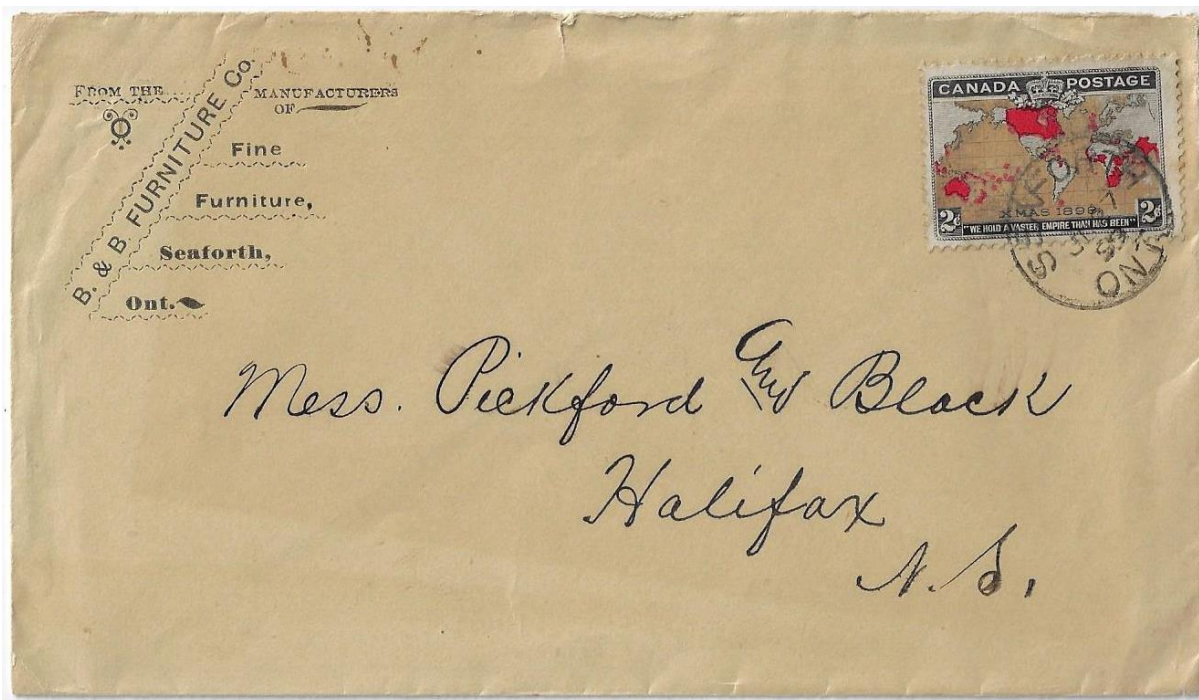 FROM THE
B. & B. FURNITURE Co.
MANUFACTURERS
OF
Fine
Furniture,
Seaforth,
Ont.
CANADA POSTAGE
XMAS 1898
2c 2c
"WE HOLD A VASTER EMPIRE THAN HAS BEEN"
SEAFORTH
ONT
Mess. Pickford and Black
Halifax
N.S.